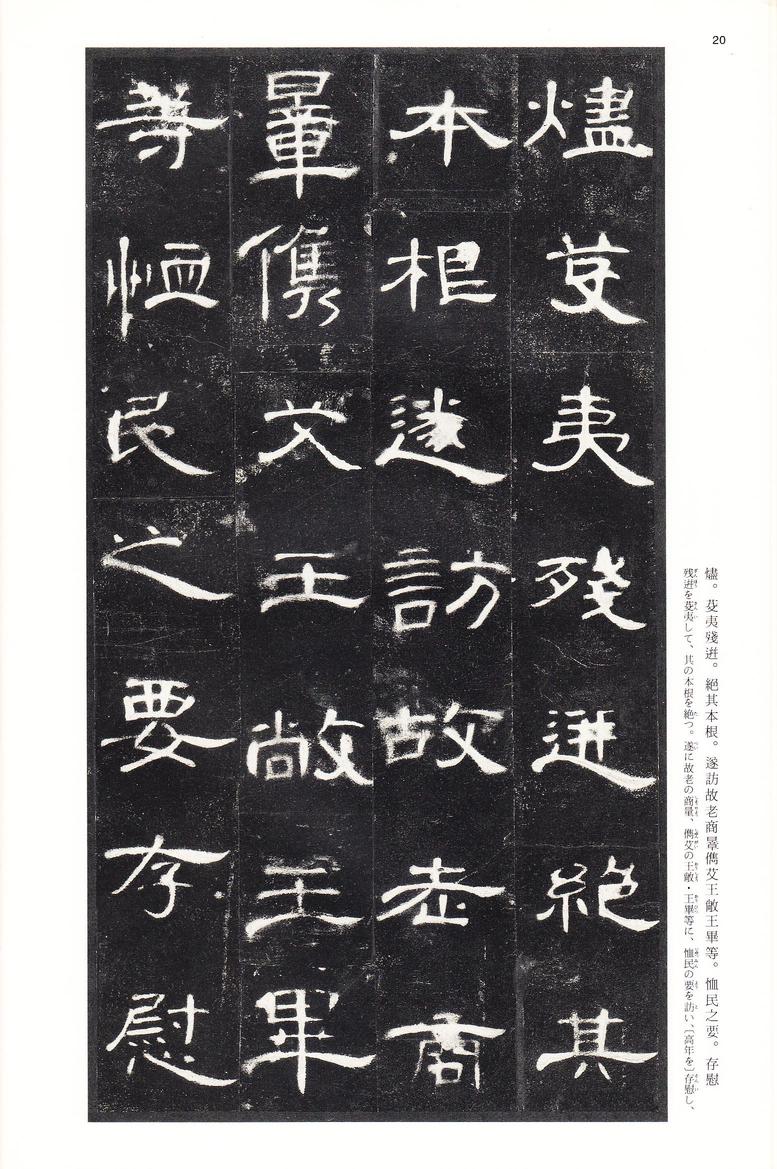 20
燼芟夷殘迸絕其
本根遂訪故老商
暈儁艾王敞王畢
等恤民之要存慰
燼。芟夷殘迸。絕其本根。遂訪故老商暈儁艾王敞王畢等。恤民之要。存慰
残迸を芟夷して、其の本根を絶つ。遂に故老の商量、儁艾の王敞・王畢等に、恤民の要を訪い、〔高年を〕存慰し、